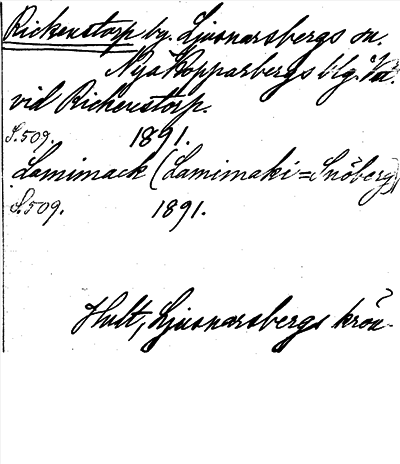 Rickenstorp by. Ljusnarsbergs sn.
Nya Kopparbergs blg.
vid Rickenstorp.
S. 509. 1891.
Lamimack (Lamimaki = Snöberg)
S. 509. 1891.
Hult, Ljusnarsbergs krön.